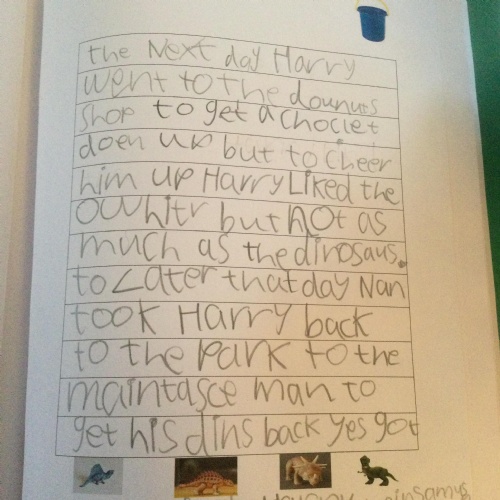 the Next day Harry
went to the dounuts
shop to get a choclet
doen up but to cheer
him up Harry Liked the
but not as
much as the dinosaus.
to Later that day Nan
took Harry back
to the park to the
maintasce man to
get his dins back yes got